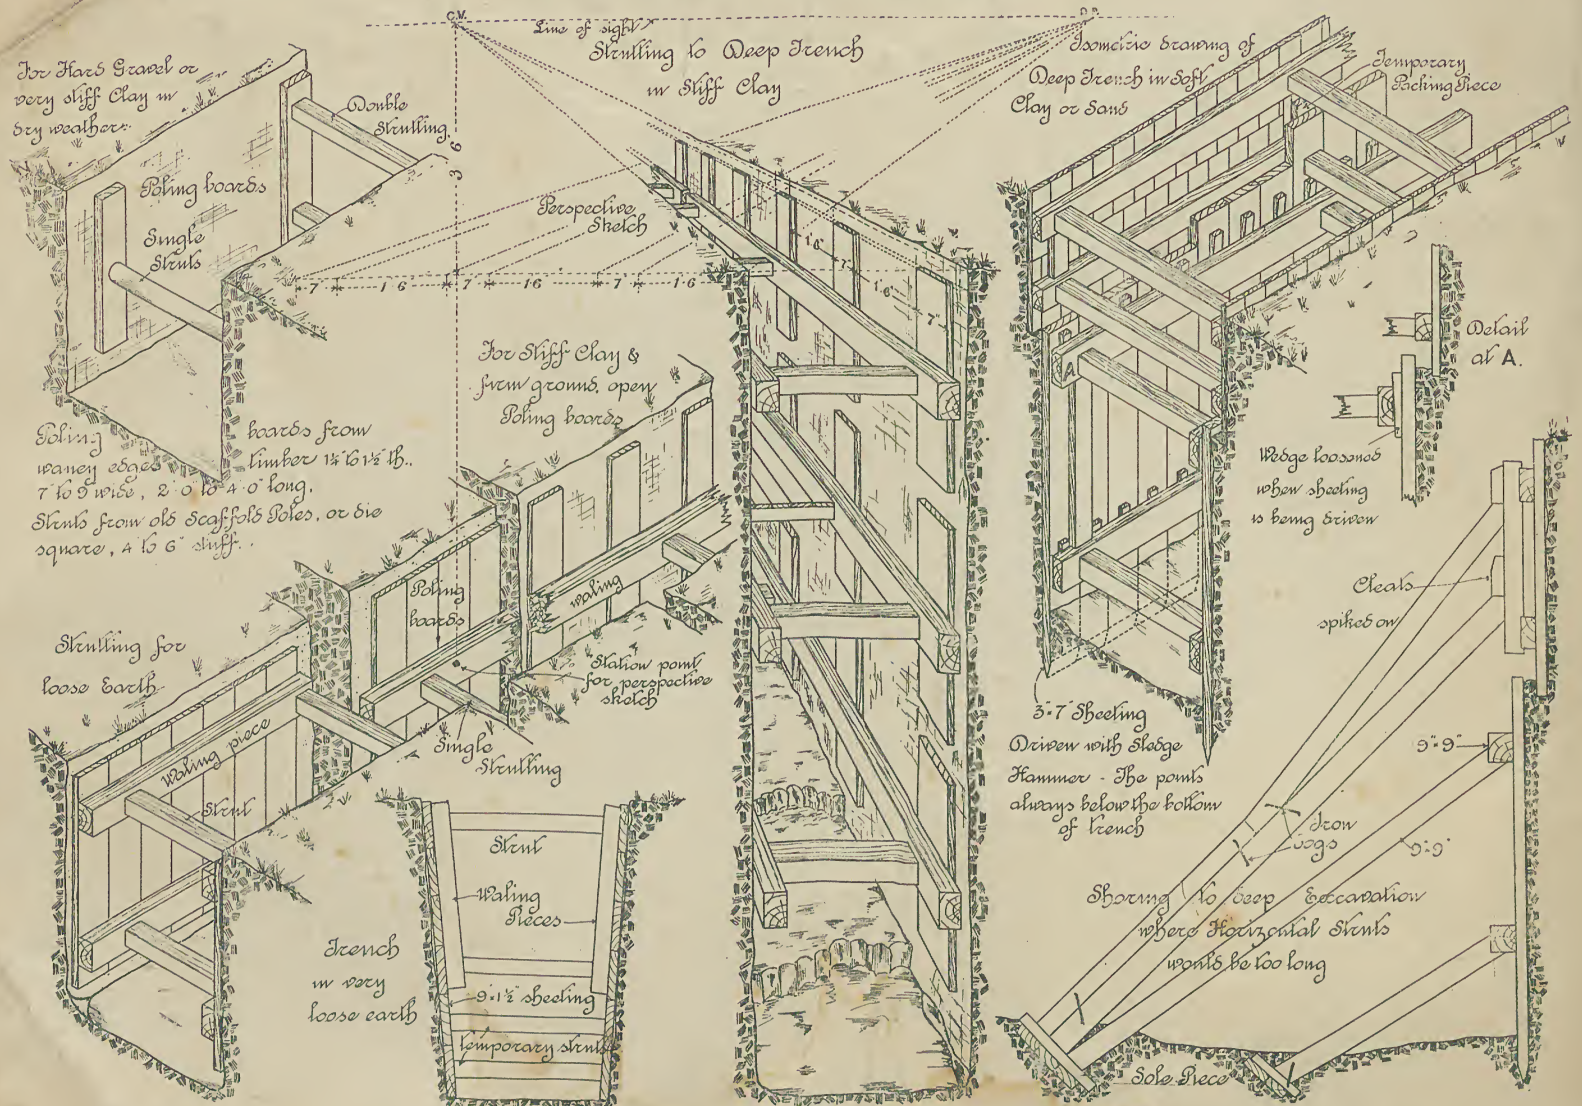 C.V.
Line of sight
D.P.
Strutting to Deep Trench
in Stiff Clay
For Hard Gravel or
very stiff Clay in
dry weather.
Double
Strutting
Poling boards
Single
Struts
3 6
Perspective
Sketch
7" 1·6 7" 1·6 7" 1·6
1'6"
7"
1'6"
7"
Isometric drawing of
Deep Trench in Soft
Clay or Sand
Temporary
Packing Piece
A
Detail
at A.
Wedge loosened
when sheeting
is being driven
Poling boards from
waney edges timber 1¼" to 1½" th..
7" to 9" wide, 2'·0" to 4'·0" long.
Struts from old Scaffold Poles, or die
square, 4" to 6" stuff..
For Stiff Clay &
firm ground, open
Poling boards
waling
Poling
boards
Station point
for perspective
sketch
Single
Strutting
Strutting for
loose Earth
Waling piece
Strut
Trench
in very
loose earth
Strut
Waling
Pieces
9"·1½" sheeting
temporary struts
3"·7" Sheeting
Driven with Sledge
Hammer - The points
always below the bottom
of trench
Cleats
spiked on
9"·9"
Iron
Dogs
9"·9"
Shoring to deep Excavation
where Horizontal Struts
would be too long
Sole Piece